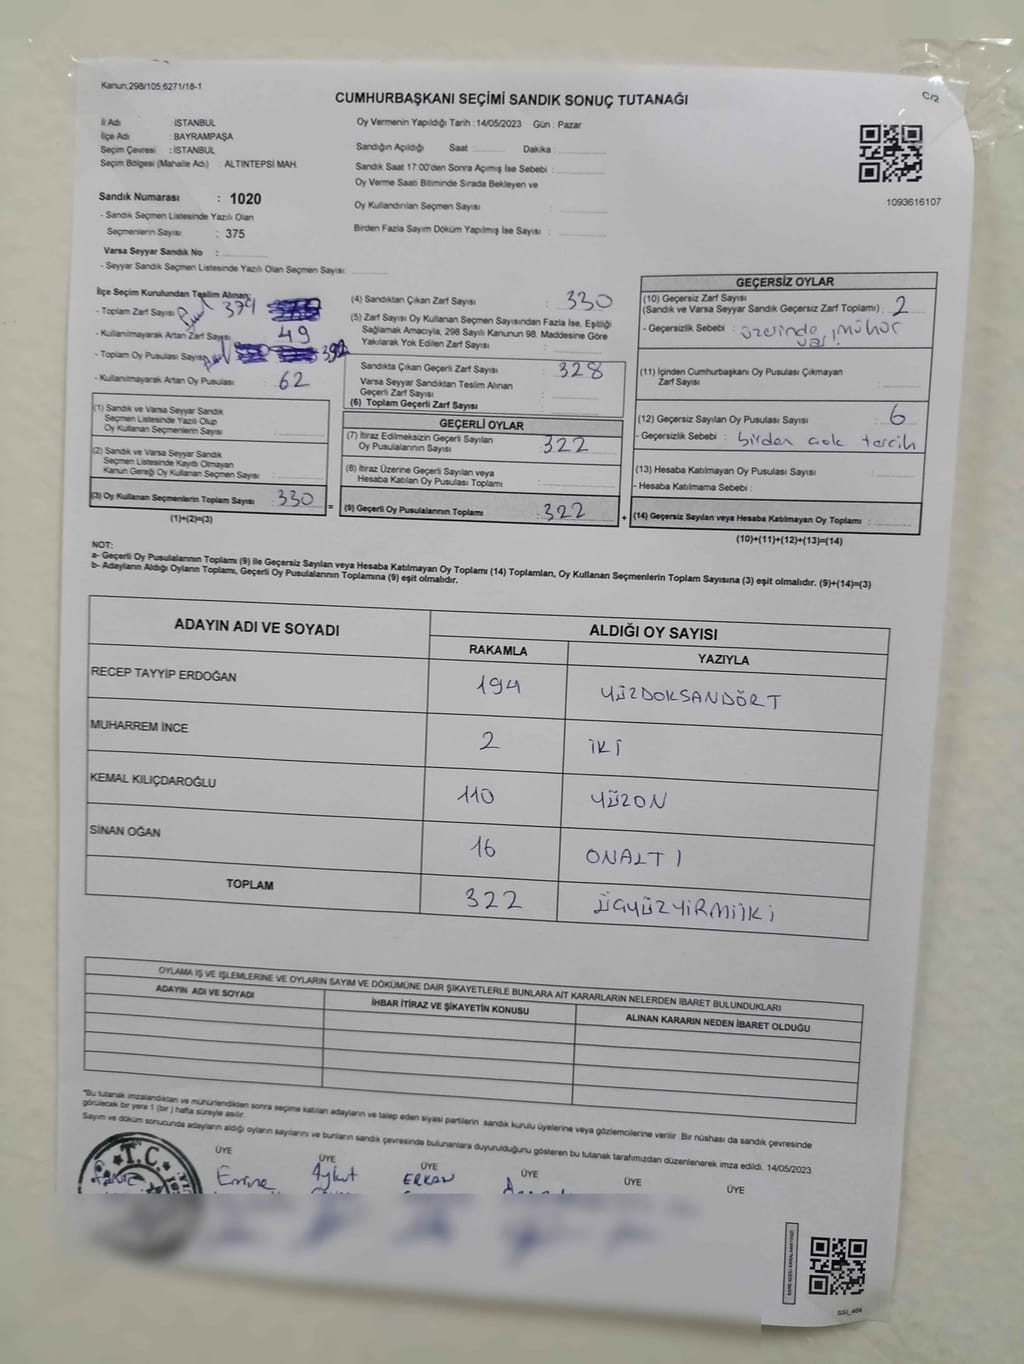 Kanun;298/105;6271/18-1
CUMHURBAŞKANI SEÇİMİ SANDIK SONUÇ TUTANAĞI
C/2
İl Adı : İSTANBUL
İlçe Adı : BAYRAMPAŞA
Seçim Çevresi : İSTANBUL
Seçim Bölgesi (Mahalle Adı) : ALTINTEPSİ MAH.
Sandık Numarası : 1020
- Sandık Seçmen Listesinde Yazılı Olan
Seçmenlerin Sayısı : 375
Varsa Seyyar Sandık No :
- Seyyar Sandık Seçmen Listesinde Yazılı Olan Seçmen Sayısı:
Oy Vermenin Yapıldığı Tarih : 14/05/2023 Gün : Pazar
Sandığın Açıldığı Saat Dakika
Sandık Saat 17:00'den Sonra Açımış İse Sebebi :
Oy Verme Saati Bitiminde Sırada Bekleyen ve
Oy Kullandırılan Seçmen Sayısı :
Birden Fazla Sayım Döküm Yapılmış İse Sayısı :
1093616107
İlçe Seçim Kurulundan Teslim Alınan;
- Toplam Zarf Sayısı 379
- Kullanılmayarak Artan Zarf Sayısı 49
- Toplam Oy Pusulası Sayısı 392
- Kullanılmayarak Artan Oy Pusulası : 62
(1) Sandık ve Varsa Seyyar Sandık
Seçmen Listesinde Yazılı Olup
Oy Kullanan Seçmenlerin Sayısı :
(2) Sandık ve Varsa Seyyar Sandık
Seçmen Listesinde Kaydı Olmayan
Kanun Gereği Oy Kullanan Seçmen Sayısı :
(3) Oy Kullanan Seçmenlerin Toplam Sayısı : 330
(1)+(2)=(3)
(4) Sandıktan Çıkan Zarf Sayısı : 330
(5) Zarf Sayısı Oy Kullanan Seçmen Sayısından Fazla İse, Eşitliği
Sağlamak Amacıyla; 298 Sayılı Kanunun 98. Maddesine Göre
Yakılarak Yok Edilen Zarf Sayısı :
Sandıkta Çıkan Geçerli Zarf Sayısı : 328
Varsa Seyyar Sandıktan Teslim Alınan
Geçerli Zarf Sayısı :
(6) Toplam Geçerli Zarf Sayısı :
GEÇERLİ OYLAR
(7) İtiraz Edilmeksizin Geçerli Sayılan
Oy Pusulasının Sayısı : 322
(8) İtiraz Üzerine Geçerli Sayılan veya
Hesaba Katılan Oy Pusulası Toplamı :
= (9) Geçerli Oy Pusulalarının Toplamı : 322
GEÇERSİZ OYLAR
(10) Geçersiz Zarf Sayısı
(Sandık ve Varsa Seyyar Sandık Geçersiz Zarf Toplamı) : 2
- Geçersizlik Sebebi : üzerinde mühür
var!
(11) İçinden Cumhurbaşkanı Oy Pusulası Çıkmayan
Zarf Sayısı :
(12) Geçersiz Sayılan Oy Pusulası Sayısı : 6
- Geçersizlik Sebebi : birden çok tercih
(13) Hesaba Katılmayan Oy Pusulası Sayısı :
- Hesaba Katılmama Sebebi :
+ (14) Geçersiz Sayılan veya Hesaba Katılmayan Oy Toplamı :
(10)+(11)+(12)+(13)=(14)
NOT:
a- Geçerli Oy Pusulalarının Toplamı (9) ile Geçersiz Sayılan veya Hesaba Katılmayan Oy Toplamı (14) Toplamları, Oy Kullanan Seçmenlerin Toplam Sayısına (3) eşit olmalıdır. (9)+(14)=(3)
b- Adayların Aldığı Oyların Toplamı, Geçerli Oy Pusulalarının Toplamına (9) eşit olmalıdır.
ADAYIN ADI VE SOYADI
ALDIĞI OY SAYISI
RAKAMLA YAZIYLA
RECEP TAYYİP ERDOĞAN 194 YÜZDOKSANDÖRT
MUHARREM İNCE 2 İKİ
KEMAL KILIÇDAROĞLU 110 YÜZON
SİNAN OĞAN 16 ONALTI
TOPLAM 322 ÜÇYÜZYİRMİİKİ
OYLAMA İŞ VE İŞLEMLERİNE VE OYLARIN SAYIM VE DÖKÜMÜNE DAİR ŞİKAYETLERLE BUNLARA AİT KARARLARIN NELERDEN İBARET BULUNDUKLARI
ADAYIN ADI VE SOYADI İHBAR İTİRAZ VE ŞİKAYETİN KONUSU ALINAN KARARIN NEDEN İBARET OLDUĞU
"Bu tutanak imzalandıktan ve mühürlendikten sonra seçime katılan adayların ve talep eden siyasi partilerin sandık kurulu üyelerine veya gözlemcilerine verilir. Bir nüshası da sandık çevresinde
görülecek bir yere 1 (bir ) hafta süreyle asılır.
Sayım ve döküm sonucunda adayların aldığı oyların sayılarını ve bunların sandık çevresinde bulunanlara duyurulduğunu gösteren bu tutanak tarafımızdan düzenlenerek imza edildi. 14/05/2023
T.C.
ÜYE ÜYE ÜYE ÜYE ÜYE ÜYE
Emine Aykut ERKAN
SSİ_404